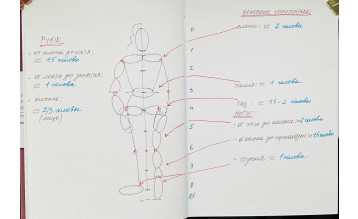 РУКИ:
- от плеча до локтя:
≈ 1.5 головы
- от локтя до запястья:
≈ 1 голова
- кисть:
≈ 2/3 головы
(лицо)
0
1
2
3
4
5
6
7
8
8.5
ОСНОВНЫЕ
- плечи: ≈ 2 головы
- талия: ≈ 1 голова
- таз: ≈ 1.5 - 2 головы
НОГИ:
- от паха до колена: ≈ 2 головы
- ступня: ≈ 1 голова